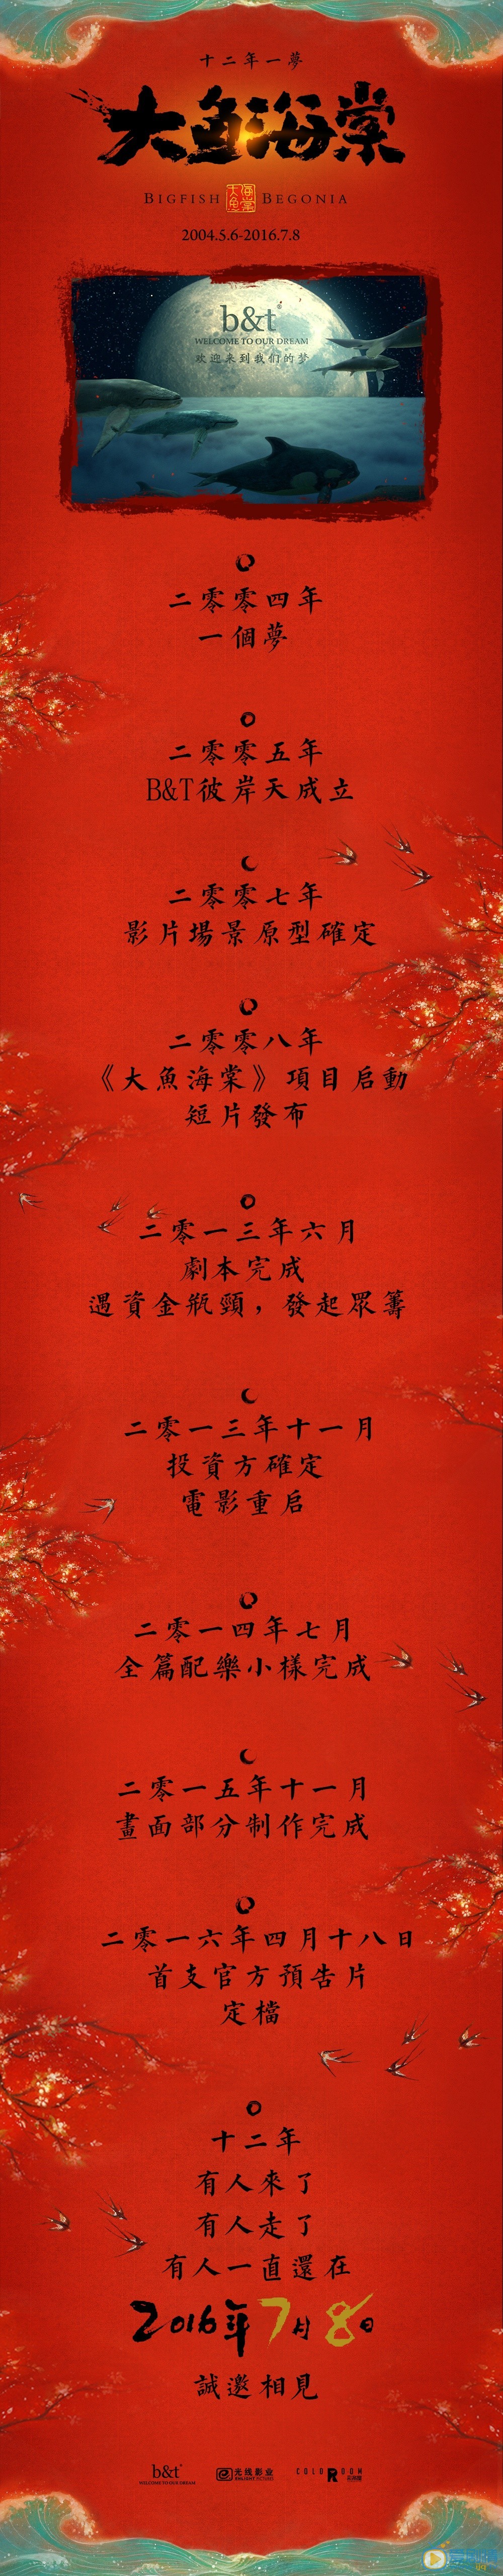 十二年一夢
大魚海棠
BIGFISH 大魚海棠 BEGONIA
2004.5.6-2016.7.8
b&t
WELCOME TO OUR DREAM
欢迎来到我们的梦
二零零四年
一個夢
二零零五年
B&T彼岸天成立
二零零七年
影片場景原型確定
二零零八年
《大魚海棠》項目启動
短片發布
二零一三年六月
劇本完成
遇資金瓶頸，發起眾籌
二零一三年十一月
投資方確定
電影重启
二零一四年七月
全篇配樂小樣完成
二零一五年十一月
畫面部分制作完成
二零一六年四月十八日
首支官方預告片
定檔
十二年
有人來了
有人走了
有人一直還在
2016年7月8日
誠邀相見
b&t
WELCOME TO OUR DREAM
光线影业
ENLIGHT PICTURES
COLOROOM